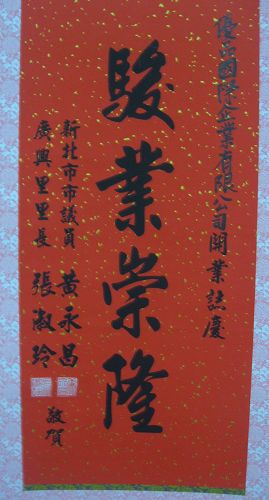 陞岳國際企業有限公司開業誌慶
駿業崇隆
新北市市議員 黃永昌
廣興里里長 張淑玲
敬賀